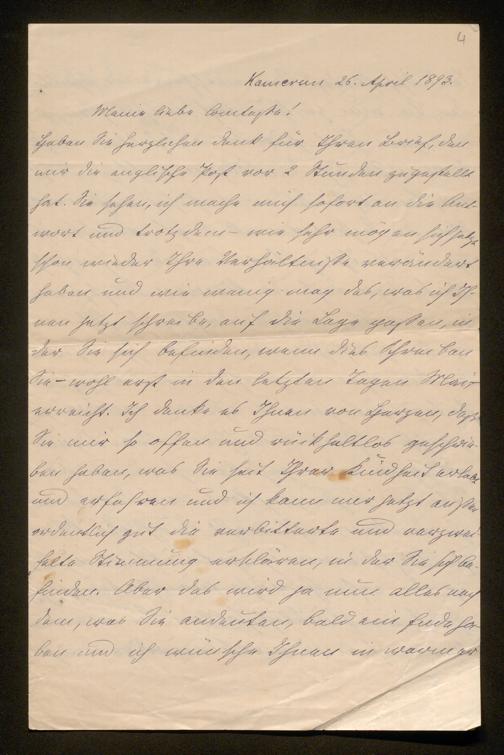 4
Kamerun 26. April 1893.
Meine liebe Comtesse!
Haben Sie herzlichen Dank für Ihren Brief, den
mir die englische Post vor 2 Stunden zugestellt
hat. Sie sehen, ich mache mich sofort an die Ant-
wort und trotzdem – wie sehr mögen sich jetzt
schon wieder Ihre Verhältnisse verändert
haben und wie wenig mag das, was ich Ih-
nen jetzt schreibe, auf die Lage passen, in
der Sie sich befinden, wenn dies Schreiben
Sie – wohl erst in den letzten Tagen Mai's
erreicht. Ich danke es Ihnen von Herzen, dass
Sie mir so offen und rückhaltlos geschrie-
ben haben, was Sie seit Ihrer Kindheit erlebt
und erfahren und ich kann mir jetzt außer
ordentlich gut die verbitterte und verzwei-
felte Stimmung erklären, in der Sie sich be-
finden. Aber das wird ja nun alles nach
dem, was Sie andeuten, bald ein Ende ha-
ben und ich wünsche Ihnen in warmer